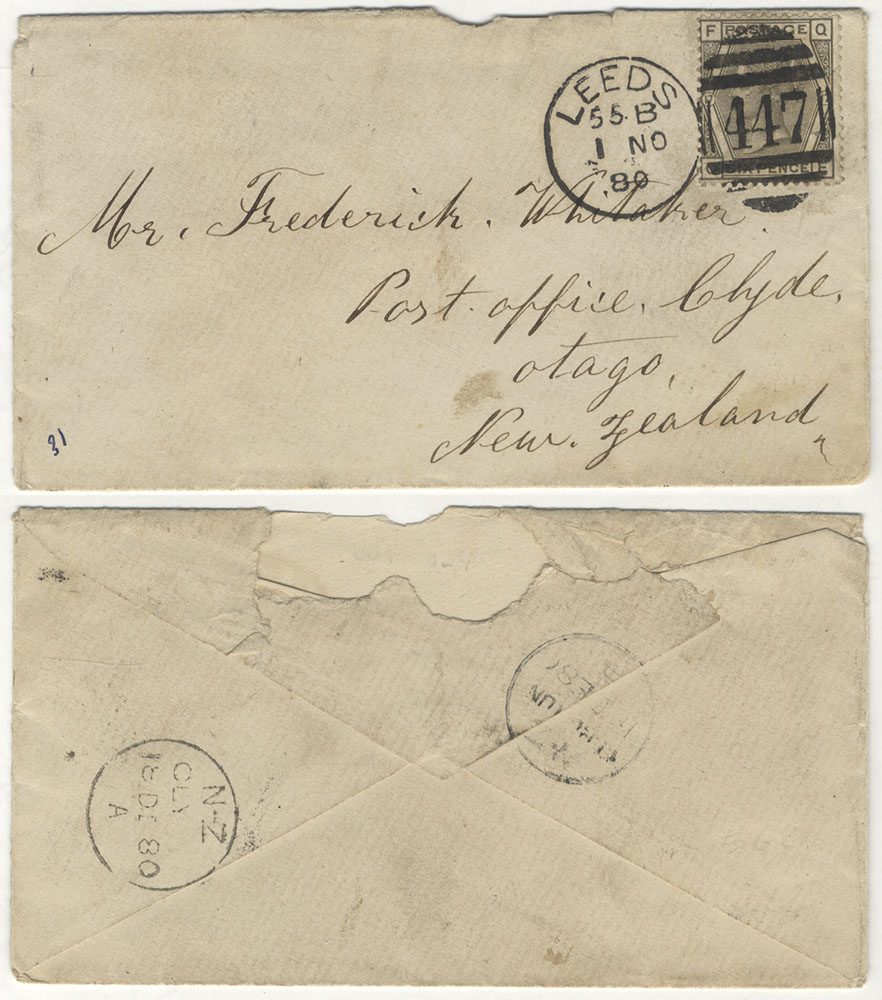 F POSTAGE Q
447
SIX PENCE E
LEEDS
55·B
1 NO
80
Mr. Frederick. Whitaker.
Post. office. Clyde.
otago.
New. Zealand
31
N-Z
CLY
18 DE 80
A